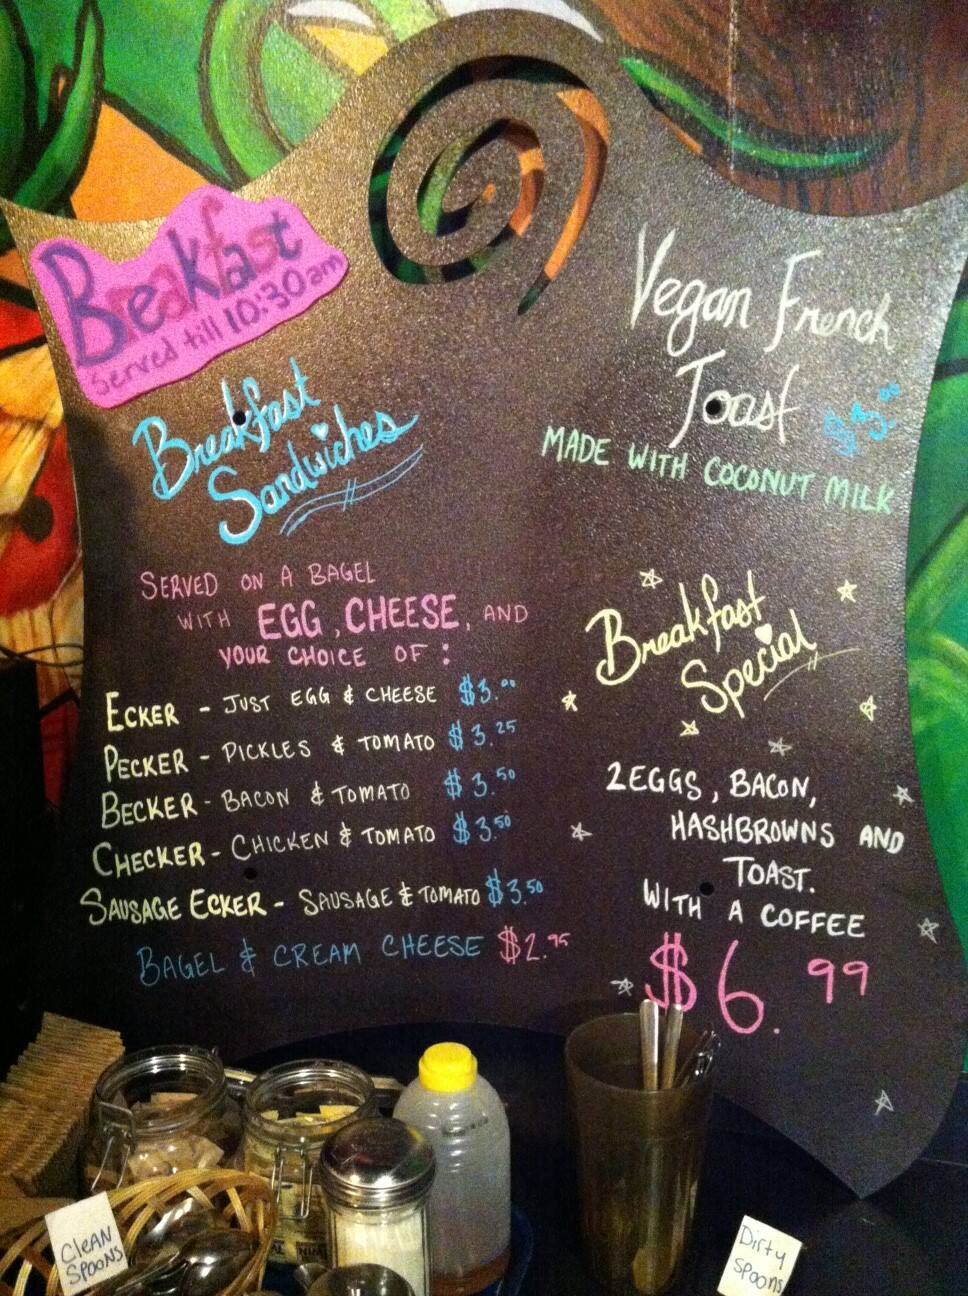 Breakfast
served till 10:30am
Breakfast
Sandwiches
SERVED ON A BAGEL
WITH EGG, CHEESE, AND
YOUR CHOICE OF:
ECKER - JUST EGG & CHEESE $3.00
PECKER - PICKLES & TOMATO $3.25
BECKER - BACON & TOMATO $3.50
CHECKER - CHICKEN & TOMATO $3.50
SAUSAGE ECKER - SAUSAGE & TOMATO $3.50
BAGEL & CREAM CHEESE $2.95
Vegan French
Toast
MADE WITH COCONUT MILK
Breakfast
Special
2 EGGS, BACON,
HASHBROWNS AND
TOAST.
WITH A COFFEE
$6.99
CLEAN
SPOONS
Dirty
SPOONS